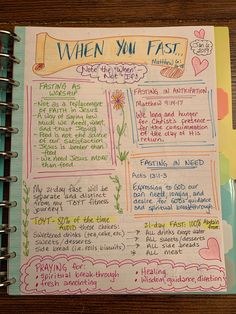 WHEN YOU FAST...
Matthew 6:
Jan 6
2019
Note the "When"
Not "If"!
FASTING AS
WORSHIP
- Not as a replacement
of FAITH in Jesus
- A way of saying how
much we need, want,
and trust Jesus!
- Food is not the source
of our satisfaction
- Jesus is better than
food
- We need Jesus more
than food.
FASTING IN ANTICIPATION
Matthew 9:14-17
We long and hunger
for Christ's presence
for the consummation
of the day of His
return.
FASTING IN NEED
Acts 13:1-3
Expressing to God our
need, longing and
desire for God's guidance
and spiritual breakthrough
My 21-day fast will be
separate and distinct
from my TOYT fitness
journey!
TOYT - 80% of the time
AVOID these choices:
Sweetened drinks (tea, coke, etc)
Sweets / desserts
Side bread (i.e. rolls, biscuits)
21-day FAST: 100% Abstain
from
ALL drinks except water
ALL sweets / desserts
ALL side breads
ALL meat
PRAYING for
- Spiritual breakthrough
- fresh anointing
- Healing
- Wisdom, guidance, direction